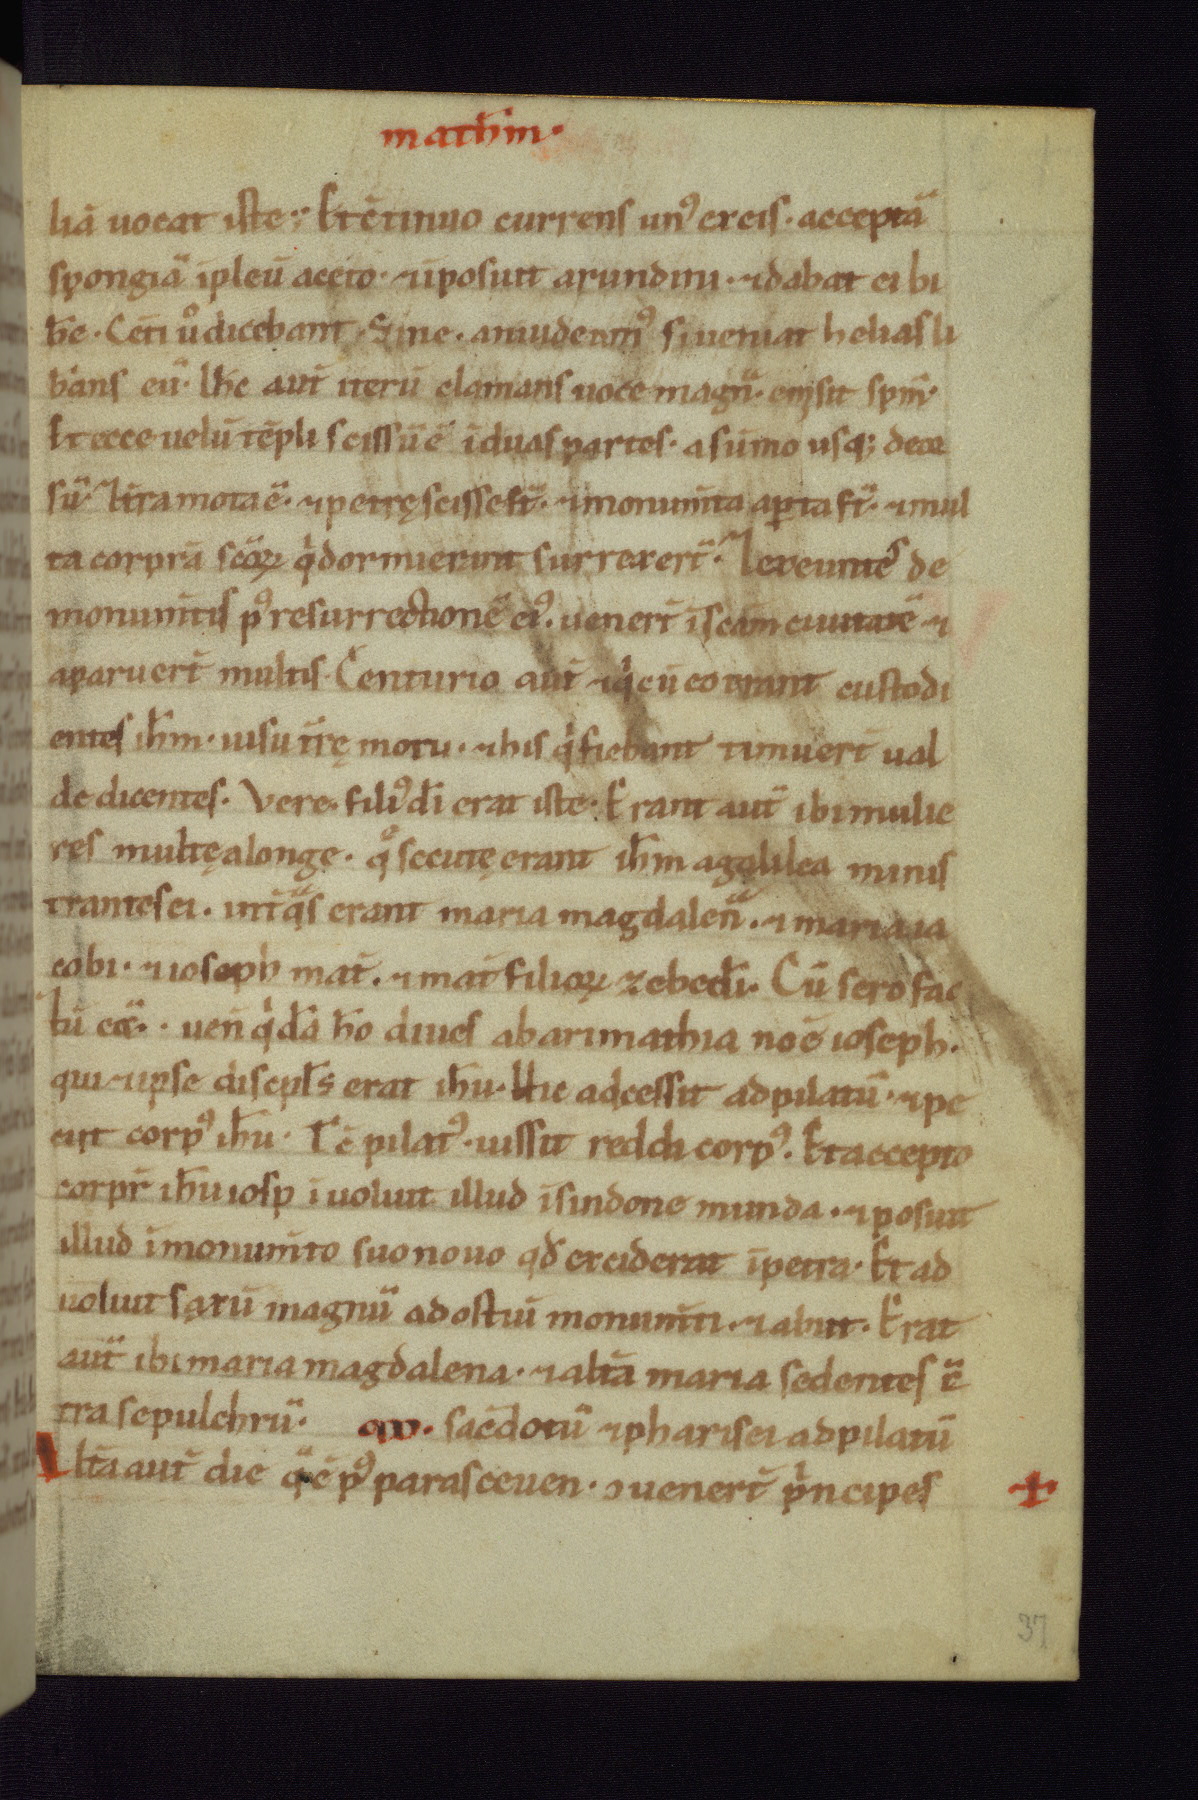 math̄m·
liā uocat iste·; Et c̄tinuo currens un᷒ ex eis· acceptā
spongiā īpleū aceto· ⁊ īposuit arundini· ⁊ dabat ei bi
b̄e· Cet̄i ů dicebant· Sine· an uideam᷒ si ueniat helias li
b̄ans eū· Ih̄c aut̄ iterū clamans uoce magn̄a· emisit sp̄m·
Et ecce uelū tēpli scissū ē ī duas partes· a sūmo usq; deor
sū· Et t̄ra mota ē· ⁊ petrę scisse st̄· ⁊ monum̄ta aꝑta st̄· ⁊ mul
ta corpr̄a sc̄oꝝ q̄ dormierant surrexer̄t· Et exeuntes de
monum̄tis p᷒ resurrectionē ei᷒· uener̄t ī sc̄am ciuitatē ⁊
aparuer̄t multis· Centurio aut̄ ⁊ q̄ cū eo erant custodi
entes ih̄m· uisu t̄rę motu· ⁊ his q̄ fiebant timuer̄t ual
de dicentes· Vere· fili᷒ d̄i erat iste· Erant aut̄ ibi mulie
res multę a longe· q̄ secutę erant ih̄m a galilea minis
trantes ei· int̄ q̄s erant maria magdalen̄a· ⁊ maria ia
cobi· ⁊ ioseph mat̄· ⁊ mat̄ filioꝝ zebed̄i· Cū sero fac
tū eēt· uen̄ q̄dā h̄o diues ab arimathia noē ioseph·
qui ⁊ ipse discipl̄s erat ih̄u· Hic adcessit ad pilatū· ⁊ pe
ciit corp᷒ ih̄u· Tc̄ pilat᷒· iussit reddi corp᷒· Et accepto
corpr̄ ih̄u iosp̄ īuoluit illud ī sindone munda· ⁊ posuit
illud ī monum̄to suo nouo qd̄ exciderat ī petra· Et ad
uoluit saxū magnū ad ostiū monum̄ti· ⁊ abiit· Erat
aut̄ ibi maria magdalena· ⁊ alt̄a maria sedentes c̄
tra sepulchrū· sac̄dotū ⁊ pharisei ad pilatū
Alt̄a aut̄ die q̄ ē p᷒ parasceuen· ꝯuener̄t p̄ncipes
37